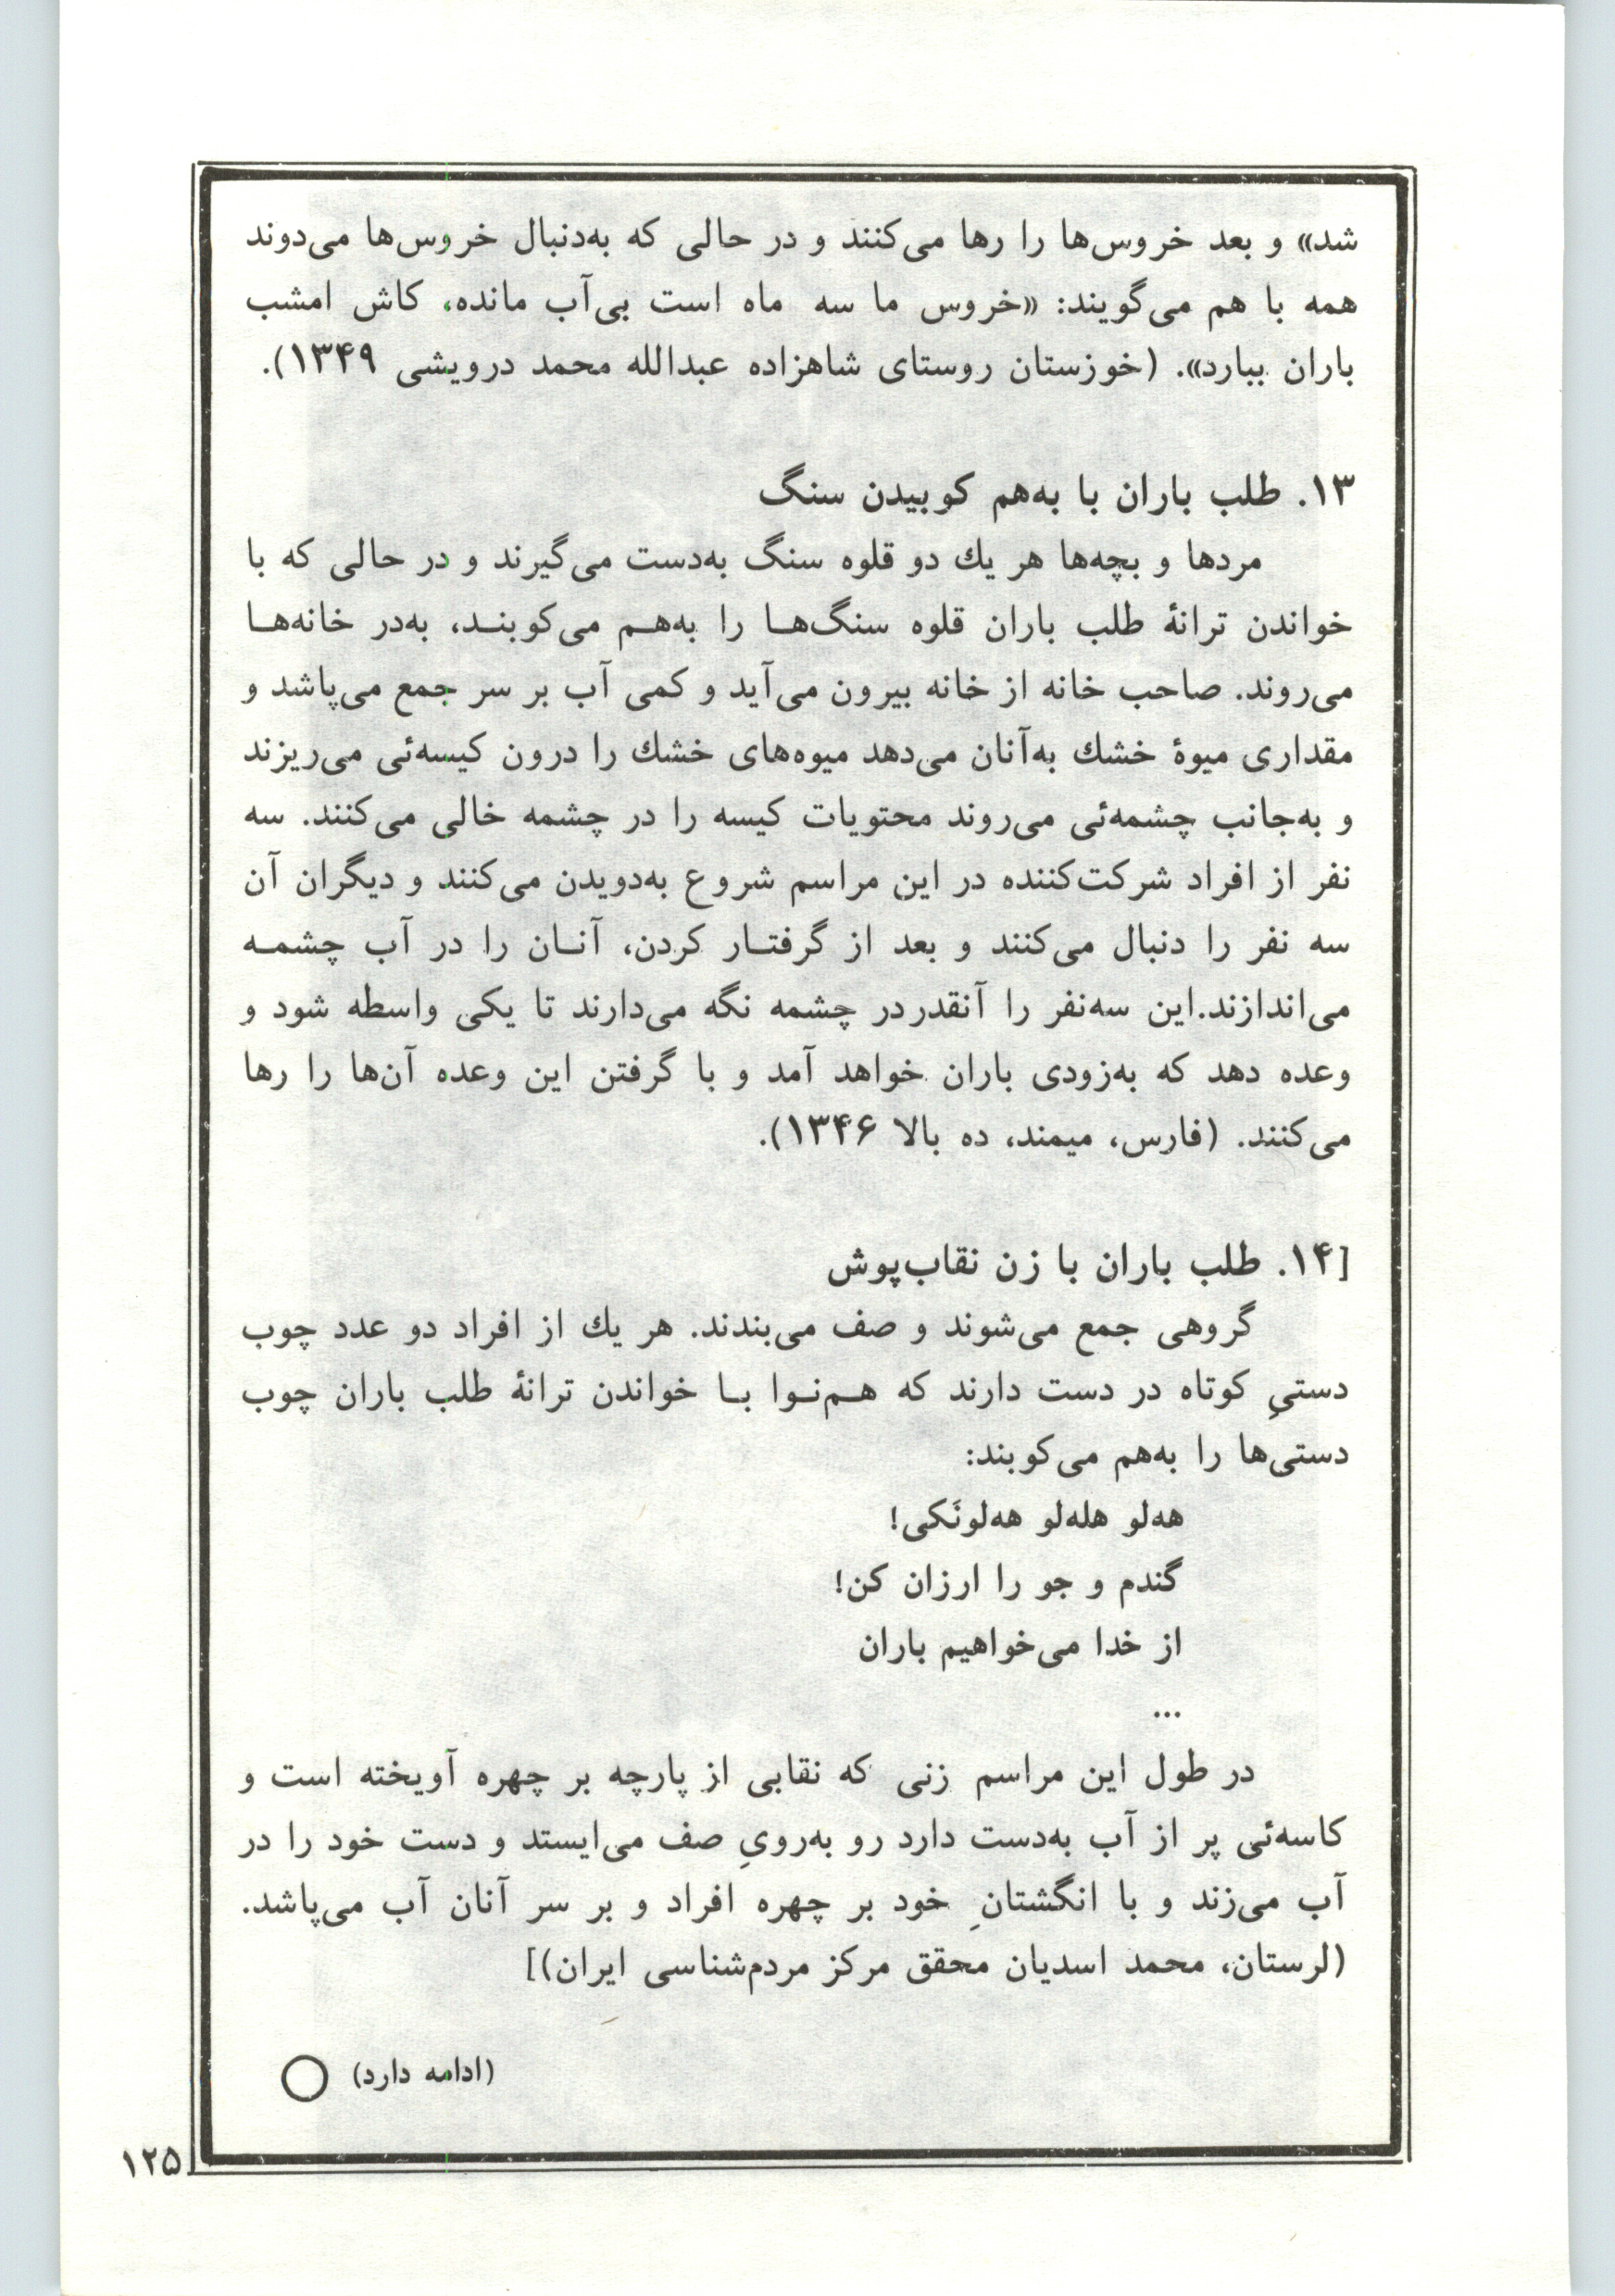 شد» و بعد خروس‌ها را رها می‌کنند و در حالی که به‌دنبال خروس‌ها می‌دوند
همه با هم می‌گویند: «خروس ما سه ماه است بی‌آب مانده، کاش امشب
باران ببارد». (خوزستان روستای شاهزاده عبدالله محمد درویشی ۱۳۴۹).
۱۳. طلب باران با به‌هم کوبیدن سنگ
مردها و بچه‌ها هر یك دو قلوه سنگ به‌دست می‌گیرند و در حالی که با
خواندن ترانهٔ طلب باران قلوه سنگ‌هـا را به‌هـم می‌کوبنـد، به‌در خانه‌هـا
می‌روند. صاحب خانه از خانه بیرون می‌آید و کمی آب بر سر جمع می‌پاشد و
مقداری میوهٔ خشك به‌آنان می‌دهد میوه‌های خشك را درون کیسه‌ئی می‌ریزند
و به‌جانب چشمه‌ئی می‌روند محتویات کیسه را در چشمه خالی می‌کنند. سه
نفر از افراد شرکت‌کننده در این مراسم شروع به‌دویدن می‌کنند و دیگران آن
سه نفر را دنبال می‌کنند و بعد از گرفتـار کردن، آنـان را در آب چشمـه
می‌اندازند.این سه‌نفر را آنقدردر چشمه نگه می‌دارند تا یکی واسطه شود و
وعده دهد که به‌زودی باران خواهد آمد و با گرفتن این وعده آن‌ها را رها
می‌کنند. (فارس، میمند، ده بالا ۱۳۴۶).
[۱۴. طلب باران با زن نقاب‌پوش
گروهی جمع می‌شوند و صف می‌بندند. هر یك از افراد دو عدد چوب
دستیِ کوتاه در دست دارند که هـم‌نـوا بـا خواندن ترانهٔ طلب باران چوب
دستی‌ها را به‌هم می‌کوبند:
هه‌لو هله‌لو هه‌لونَکی!
گندم و جو را ارزان کن!
از خدا می‌خواهیم باران
...
در طول این مراسم زنی که نقابی از پارچه بر چهره آویخته است و
کاسه‌ئی پر از آب به‌دست دارد رو به‌رویِ صف می‌ایستد و دست خود را در
آب می‌زند و با انگشتانِ خود بر چهره افراد و بر سر آنان آب می‌پاشد.
(لرستان، محمد اسدیان محقق مرکز مردم‌شناسی ایران)]
(ادامه دارد)
۱۲۵